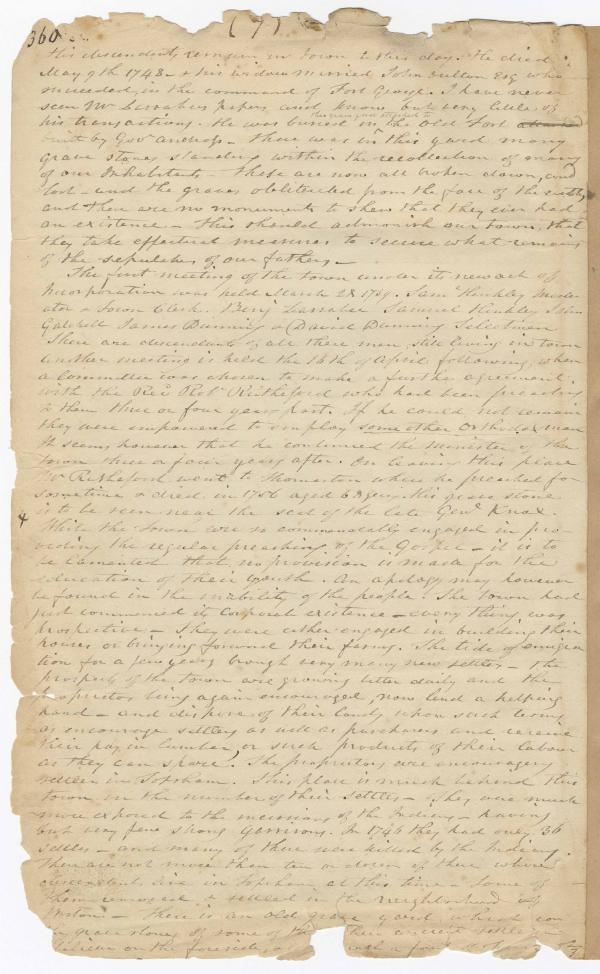 360
(7)
his descendents remain in town to this day. He died
May 9th 1748 - & his widow married John Sutton Esq who
succeeded in the command of Fort George. I have never
seen Mr Larrabee papers and know but very little of
his transactions. He was buried in the old Fort
built by Govr Andross - there was in this yard many
grave stones standing within the recollection of many
of our Inhabitants - these are now all broken down, and
lost - and the graves obliterated from the face of the earth,
and there are no monuments to shew that they ever had
an existence - this should admonish our town, that
they take effectual measures to secure what remains
of the sepulchres of our fathers -
The first meeting of the town under its new act of
Incorporation was held March 28 1739. Saml Hinkley Moder
ator & Town Clerk. Benj Larrabee Samuel Hinkley John
Gatchell James Dunning & David Dunning Selectmen
There are descendents of all these men still living in town
another meeting is held the 14th of April following, when
a Committee was chosen to make a further agreement
with the Revd Robt Rutheford who had been preaching
to them three or four years past. If he could not remain
they were empowered to employ some other Orthodox man
It seems however that he continued the Minister of the
town three or four years after. On leaving this place
Mr Rutheford went to Thomaston where he preached for
sometime & died in 1756 aged 68 years his grave stone
is to be seen near the seat of the late Genl Knox.
While the town were so commendably engaged in pro-
viding the regular preaching of the Gospel - it is to
be lamented that no provision is made for the
education of their youth. An apology may however
be found in the inability of the people. The town had
just commenced its Corporate existence - every thing was
prospective - They were either engaged in building their
houses or bringing forward their farms. The tide of emigra
tion for a few years brough very many new settlers - the
prospects of the town are growing better daily and the
proprietors being again encouraged, now lend a helping
hand - and dispose of their lands, upon such terms
as encourage settlers as well as purchasers and receive
their pay in lumber, or such products of their labour
as they can spare. The proprietors are encouraging
settlers in Topsham. This place is much behind this
town in the number of their settlers - They were much
more exposed to the incursions of the Indians - having
but very few strong garrisons. In 1746 they had only 36
settlers - and many of these were killed by the Indians.
There are not more than ten or dozen of these whose
descendents live in Topsham at this time - Some of
them removed & settled in the neighborhood of
- There is an old grave yard which con
grave stones of some of the ancient settlers
on the foreside, a